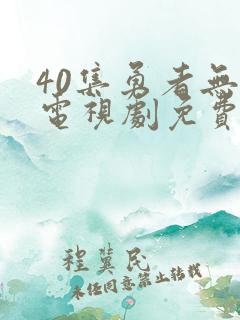 40集勇者無
電視劇免費
程冀民
未经同意禁止转载